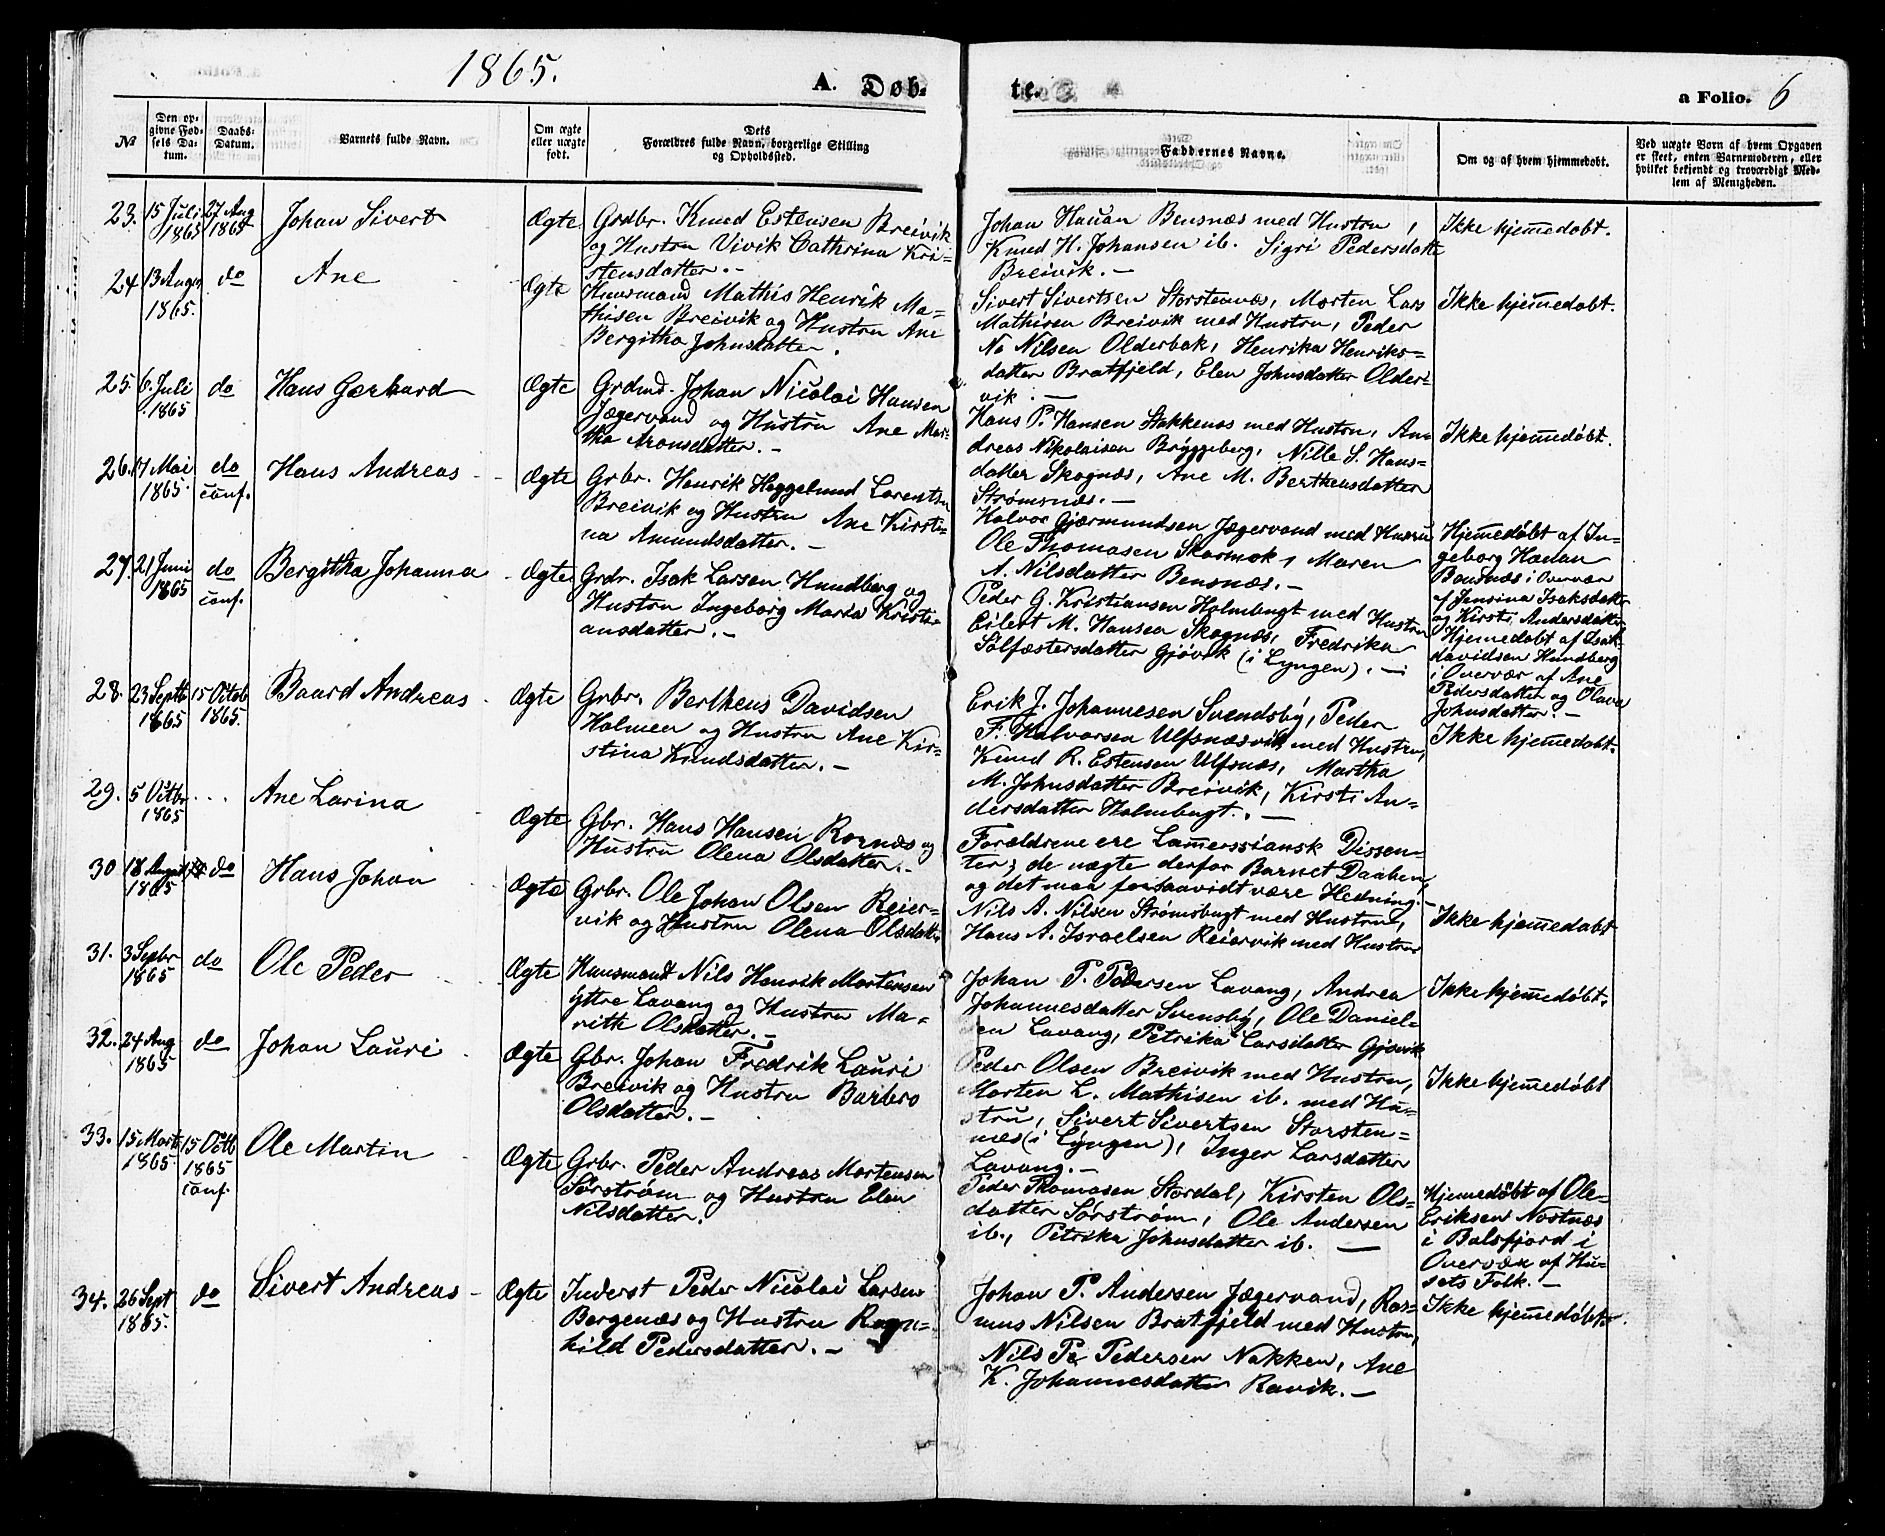 1865.
A. Døb-
te.
a Folio. 6
№
Den op-
givne Fød-
sels Da-
tum.
Daabs-
Datum.
Barnets fulde Navn.
Om ægte
eller uægte
født.
Dets
Forældres fulde Navn, borgerlige Stilling
og Opholdssted.
Faddernes Navne.
Om og af hvem hjemmedøbt.
Ved uægte Børn af hvem Opgaven
er skeet, enten Barnemoderen, eller
hvilket bekjendt og troværdigt Med-
lem af Menigheden.
23.
15 Juli
1865
27 Aug
1865
Johan Sivert
Ægte
Grdbr. Knud Estensen Breivik
og Hustru Vivik Cathrina Kri-
stensdatter.-
Johan Hauan Bensnæs med Hustru,
Knud H. Johansen ib. Sigri Pedersdatte
Breivik.-
Ikke hjemedøbt.
24
13 Augs
1865.
do
Ane
Ægte
Huusmand Mathis Henrik Ma-
thisen Breivik og Hustru Ane
Bergitha Johnsdatter.
Sivert Sivertsen Storstennæs, Morten Lars
Mathisen Breivik med Hustru, Peder
No Nilsen Olderbak, Henrika Henriks=
datter Bratfjeld, Elen Johnsdatter Older-
vik.-
Ikke hjemedøbt.
25.
6. Juli
1865
do
Hans Gerhard
Ægte
Grdmd. Johan Nicolai Hansen
Jægervand og Hustru Ane Mar-
tha Aronsdatter.-
Hans P. Hansen Stakkenæs med Hustru, An-
dreas Nikolaisen Bryggeberg, Nille S. Hans-
datter Skognæs, Ane M. Bertheusdatter
Strømsnæs.-
Ikke hjemedøbt.
26.
17 Mai
1865.
do
conf.
Hans Andreas
Ægte
Grbr. Henrik Heggelund Lorentsn
Breivik og Hustru Ane Kirsti-
na Amundsdatter.-
Halvor Gjærmundsen Jægervand med Hustru
Ole Thomasen Skarmok, Maren
A. Nilsdatter Bensnæs.-
Hjemedøbt af In-
geborg Hauan
Bensnæs i Overvær
af Jensina Isaksdatter
og Kirsti Andersdatter
27.
21 Juni
1865
do
conf.
Bergitha Johanna
Ægte
Grdr. Isak Larsen Hundberg og
Hustru Ingeborg Maria Kristi-
ansdatter.-
Peder G. Kristiansen Holmbugt med Hustru
Eilert M. Hansen Skognæs, Fredrika
Sølfæstersdatter Gjøvik (i Lyngen).-
Hjemedøbt af Isak
Davidsen Hundberg
i Overvær af Ane
Pedersdatter og Olava
Johnsdatter.-
28.
23 Septb
1865
15 Octob
1865.
Baard Andreas
Ægte
Grbr. Bertheus Davidsen
Holmen og Hustru Ane Kir-
stina Knudsdatter.-
Erik J. Johannesen Svendsby, Peder
F. Halvorsen Ulfsnæsvik med Hustru,
Knud R. Estensen Ulfsnæs, Martha
M. Johnsdatter Breivik, Kirsti An-
dersdatter Holmbugt.-
Ikke hjemedøbt.
29.
5 Octbr
1865
...
Ane Larina
Ægte
Gbr. Hans Hansen Rornæs og
Hustru Olena Olsdatter.-
Forældrene ere Lamerssiansk Dissen-
ter; de nægte derfor Barnet Daaben,
og det maa forsaavidt være Hedning.-
30
18 August
1865
do
Hans Johan
Ægte
Grbr. Ole Johan Olsen Reier-
vik og Hustru Olena Olsdattr
Nils A. Nilsen Strømsbugt med Hustru,
Hans A. Israelsen Reiervik med Hustru
Ikke hjemedøbt
31.
3 Sepbr
1865
do
Ole Peder
Ægte
Huusmand Nils Henrik Mortensen
yttre Lavang og Hustru Ma-
rith Olsdatter.-
Johan P. Pedersen Lavang, Andrea
Johannesdatter Svensby, Ole Daniel-
sen Lavang, Petrika Larsdatter Gjøvik
Ikke hjemedøbt.
32.
24 Aug
1865
do
Johan Lauri
Ægte
Gbr. Johan Fredrik Lauri
Breivik og Hustru Barbro
Olsdatter.-
Peder Olsen Breivik med Hustru,
Morten L. Mathisen ib. med Hu-
stru, Sivert Sivertsen Storsten-
næs (i Lyngen), Inger Larsdatter
Lavang.-
Ikke hjemedøbt
33.
15 Marts
1865.
15 Octb
1865
conf.
Ole Martin
Ægte
Grbr. Peder Andreas Mortensen
Sørstrøm og Hustru Elen
Nilsdatter.
Peder Thomasen Stordal, Kirsten Ols-
datter Sørstrøm, Ole Andersen
ib., Petrika Johnsdatter ib. -
Hjemedøbt af Ole
Eriksen Nostnæs
i Balsfjord i
Overvær af Hu-
sets Folk.-
34.
26 Sept
1865.
do
Sivert Andreas
Ægte
Inderst Peder Nicolai Larsen
Bergenæs og Hustru Ragn-
hild Pedersdatter.-
Johan P. Andersen Jægervand, Ras-
mus Nilsen Bratfjeld med Hustru,
Nils Pe Pedersen Nakken, Ane
K. Johannesdatter Ravik.-
Ikke hjemedøbt.